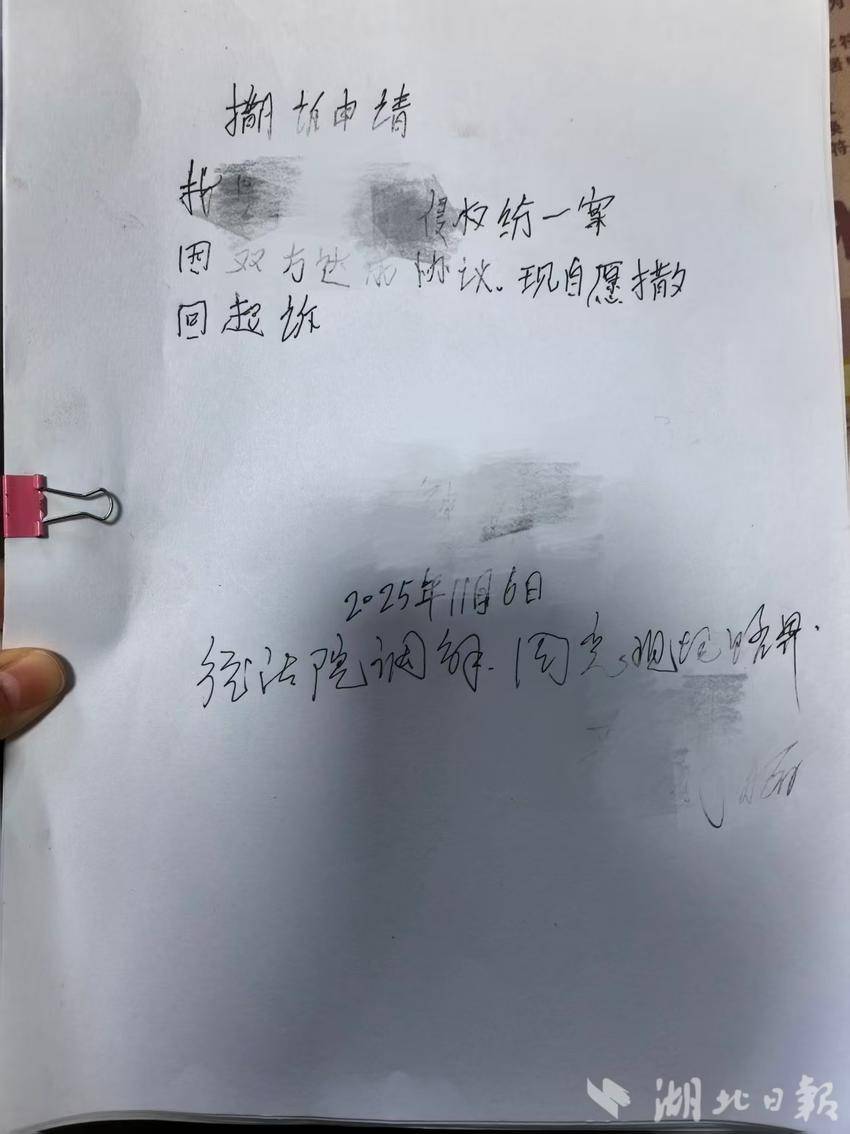 撤诉申请
我
侵权纷一案
因双方达成协议。现自愿撒
回起诉
2025年11月6日
经法院调解. 同意现
湖北日報